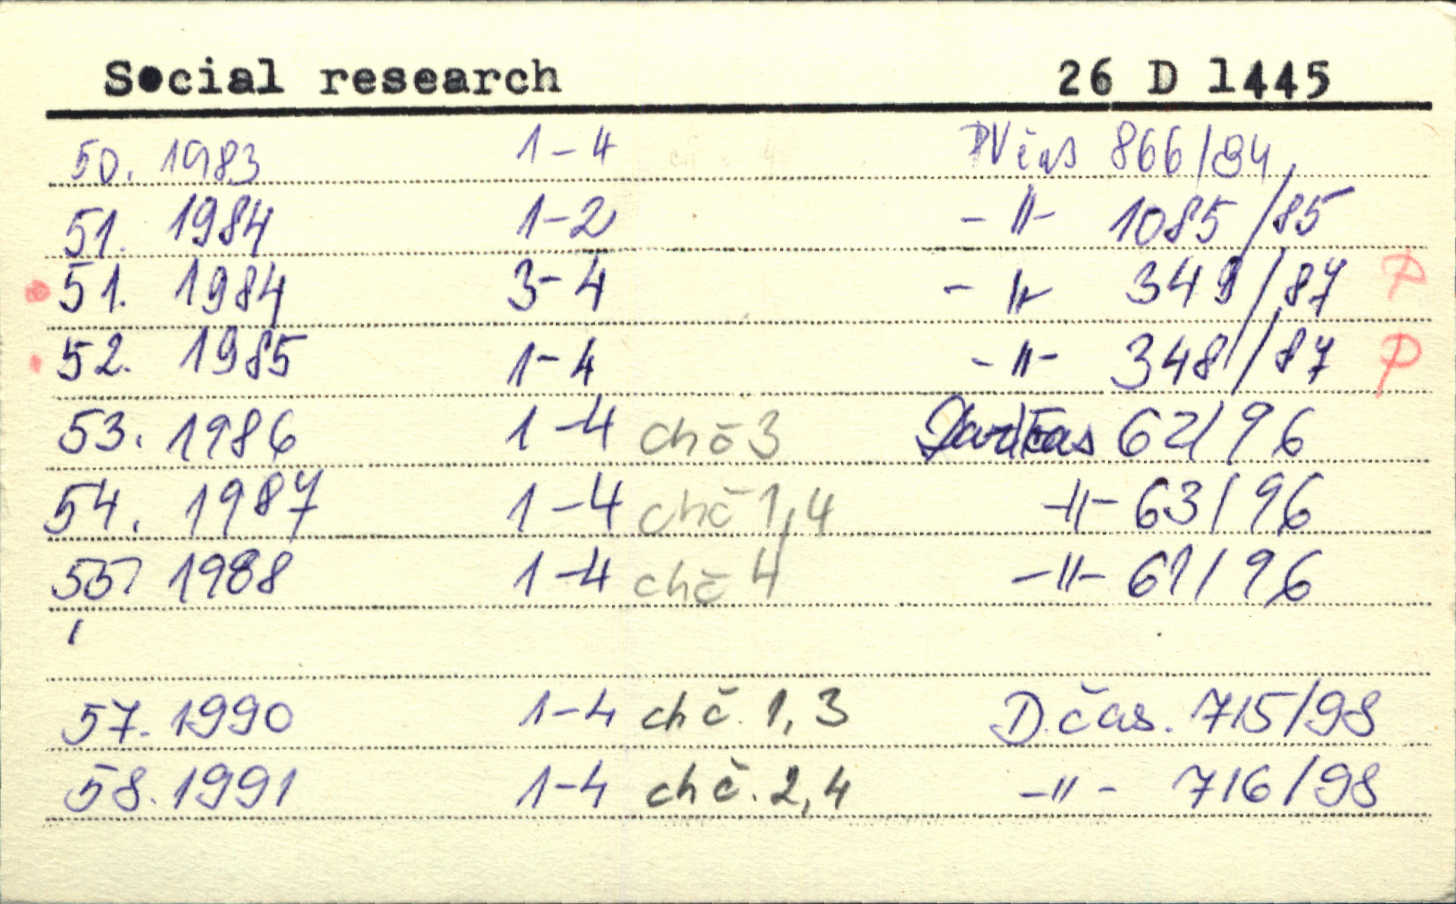 Social research 26 D 1445
50. 1983 1-4 PV čas 866/84
51. 1984 1-2 -"- 1085/85
51. 1984 3-4 -"- 349/87 P
52. 1985 1-4 -"- 348/87 P
53. 1986 1-4 chč 3 62/96
54. 1987 1-4 chč 1,4 -"- 63/96
55. 1988 1-4 chč 4 -"- 61/96
57. 1990 1-4 chč. 1,3 D. čas. 715/98
58. 1991 1-4 chč. 2,4 -"- 716/98